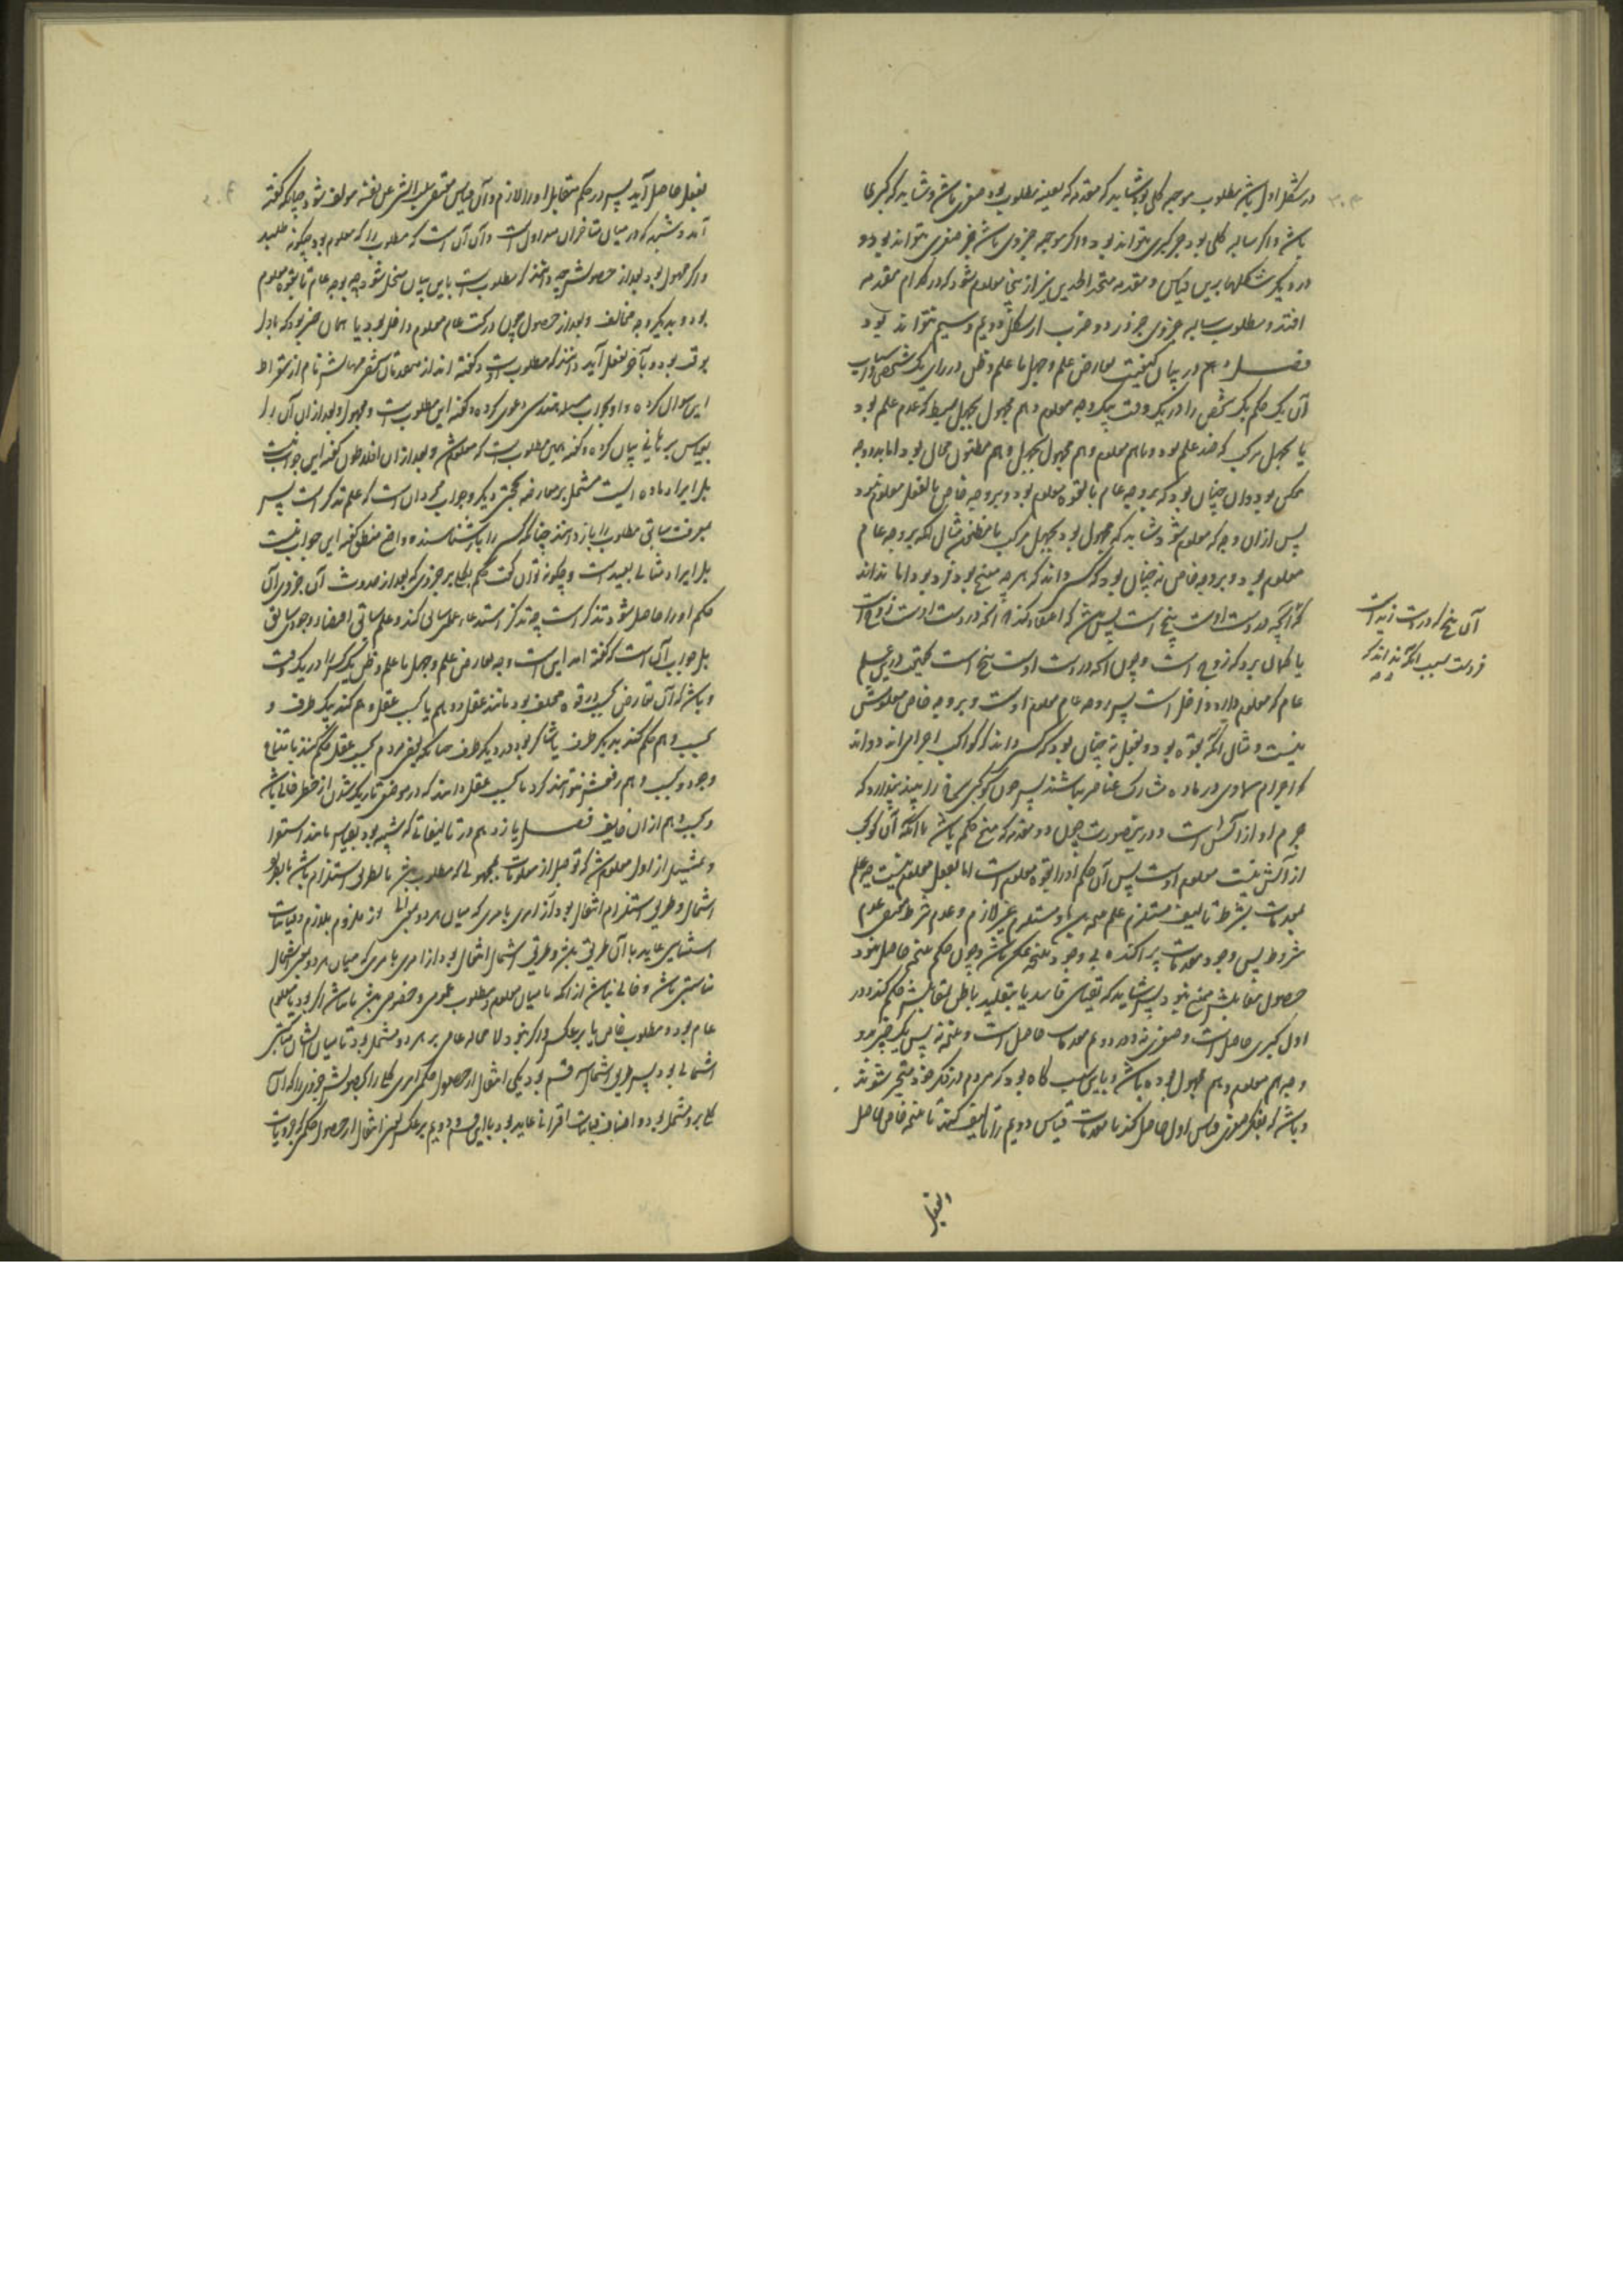 در شکل اول باشد مطلوب موجبه کلی بود شاید که مقدمه که بعینه مطلوب بود صغری باشد و شاید که کبری اما
باشد و اگر سالبه کلی بود جز کبری نتواند بود و اگر موجبه جزوی باشد جز صغری نتواند بود و
در دیگر شکلها برین قیاس و مقدمه متحد الحدین نیز ازینجا معلوم شود که در کدام مقدمه
افتد و مطلوب سالبه جزوی جز در دو ضرب از شکل دویم و سیم نتواند بود
فصل دهم در بیان کیفیت تعارض علم و جهل یا علم و ظن در رای یک شخص و اسباب
آن یک حکم یک شخص را در یک وقت بیک وجه معلوم و هم مجهول بجهل بسیط که عدم علم بود
یا بجهل مرکب که ضد علم بود و یا هم معلوم و هم مجهول بجهل و هم مظنون محال بود اما بدو وجه
ممکن بود و آن چنان بود که بر وجه عام بالقوه معلوم بود و بر وجه خاص بالفعل معلوم نبود
پس از آن وجه که معلوم نبود شاید که مجهول بود بجهل مرکب یا مظنون مثال آنکه بر وجه عام
معلوم بود و بر وجه خاص نه چنان بود که کسی داند که هر چه پنج بود فرد بود اما نداند
که آنچه در دست اوست پنج است پس شاید که اعتقاد کند که آنچه در دست اوست زوج است
یا گمان برد که زوج است و چون آنچه در دست اوست پنج است بحقیقت در علم
عام که معلوم دارد داخل است پس بر وجه عام معلوم اوست و بر وجه خاص معلومش
نیست و مثال آنکه بقوه بود و بفعل نه چنان بود که کسی داند که کواکب اجرام‌اند و داند
که اجرام سماوی در ماده مشارک عناصر نباشند پس چون کوکبی سرخ را بیند پندارد که
جرم او از آتش است و درین صورت چون دو مقدمه که منتج حکم باشد با آنکه آن کوکب
از آتش نیست معلوم اوست پس آن حکم او را بقوه معلوم است اما بفعل معلوم نیست چه علم
بمقدمات بشرط تالیف مستلزم علم بنتیجه بود و مستلزم غیر لازم و عدم شرط مقتضی عدم
مشروط پس وجود مقدمات پراکنده بی وجود نتیجه ممکن باشد و چون حکم نتیجه حاصل نبود
حصول مقابلش ممتنع نبود پس شاید که بقیاس فاسد یا بتقلید باطل بمقابلش حکم کند و در
اول کبری حاصل است و صغری نه و در دویم مقدمات حاصل است و نتیجه نه پس یک چیز بدو
وجه هم معلوم و هم مجهول بوده باشد و باین سبب گاه بود که مردم از فکر خود متحیر شوند
و باشد که بفکر صغری قیاس اول حاصل کند یا مقدمات قیاس دویم را تالیف کند تا نتیجه خاص حاصل
آن پنج که در دست زید است
فردست بسبب آنکه نداند که
بفعل
بفعل حاصل آید پس در حکم متقابل او را لازم و آن قیاس مقتضی سلب الشی عن نفسه مولف شود چنانکه گفته
آمد و شبهه که در میان متاخران متداول است و آن آن است که مطلوب را که معلوم بود چگونه طلبند
و اگر مجهول بود بعد از حصولش چه دانند که مطلوب است باین بیان منحل شود چه بوجه عام تا بقوه معلوم
بود و بدیگر وجه مخالف و بعد از حصول چون در تحت عام معلوم داخل بود یا همان چیز بود که باول
بوقت بود و بآخر بفعل آید دانند که مطلوب است و گفته‌اند از متقدمان شخصی مانن نام از سقراط
این سوال کرده و او بجواب مسئله هندسی دعوی کرده و گفته این مطلوب است و مجهول و بعد از آن آن را
بقیاس برهانی بیان کرده و گفته همین مطلوب است که معلوم شد و بعد از آن افلاطون گفته این جواب نیست
بل ایراد ماده ایست مشتمل بر معارضه بحجتی دیگر و جواب آن است که علم تذکر است پس
بمعرفت سابق مطلوب را باز دانند چنانکه کسی را باز شناسند و واضع منطق گفته این جواب نیست
بل ایراد مثالی بعید است و چگونه توان گفت حکم بکلی بر جزوی که بعد از حدوث آن جزوی آن
حکم او را حاصل شود تذکر است چه تذکر استدعاء علمی سابق کند و علم سابق اقتضاء وجودی سابق
بل جواب آن است که گفته آمد این است وجه تعارض علم و جهل یا علم و ظن یک کس را در یک وقت
و باشد که آن تعارض بحسب دو قوه مختلف بود مانند عقل و وهم یا بحسب عقل و هم کند بیک طرف و
بحسب وهم حکم کند بدیگر طرف یا شاک بود در دیگر طرف چنانکه بعضی مردم بحسب عقل حکم کنند بامتناع
وجود و بحسب وهم رفعش نتوانند کرد یا بحسب عقل دانند که در موضعی تاریک شدن از خطر خالی باشد
و بحسب وهم از آن خایف فصل یازدهم در تالیفاتی که شبیه بود بقیاس مانند استقرا
و تمثیل از اول معلوم شد که توصل از معلومات بمجهولی که مطلوب باشد یا بطریق استلزام باشد یا بطریق
اشتمال و طریق استلزام انتقال بود از امری بامری که میان هر دو لزومی بود از ملزوم بلازم و قیاسات
استثنایی عاید با آن طریق باشد و طریق اشتمال انتقال بود از امری بامری که میان هر دو بحسب اشتمال
مناسبتی باشد و خالی نباشد از آنکه یا میان معلوم و مطلوب عموم و خصوص باشد یا نباشد اگر بود یا معلوم
عام بود و مطلوب خاص یا برعکس و اگر نبود لا محاله عامی بر هر دو مشتمل بود تا میان ایشان مناسبتی
اشتمالی بود پس طریق اشتمال سه قسم بود یکی انتقال از حصول حکمی امری کلی را بحصولش جزوی را که آن
کلی بر او مشتمل بود و اصناف قیاسات اقترانی عاید بود باین قسم و دویم برعکس یعنی انتقال از حصول حکمی که جزویات